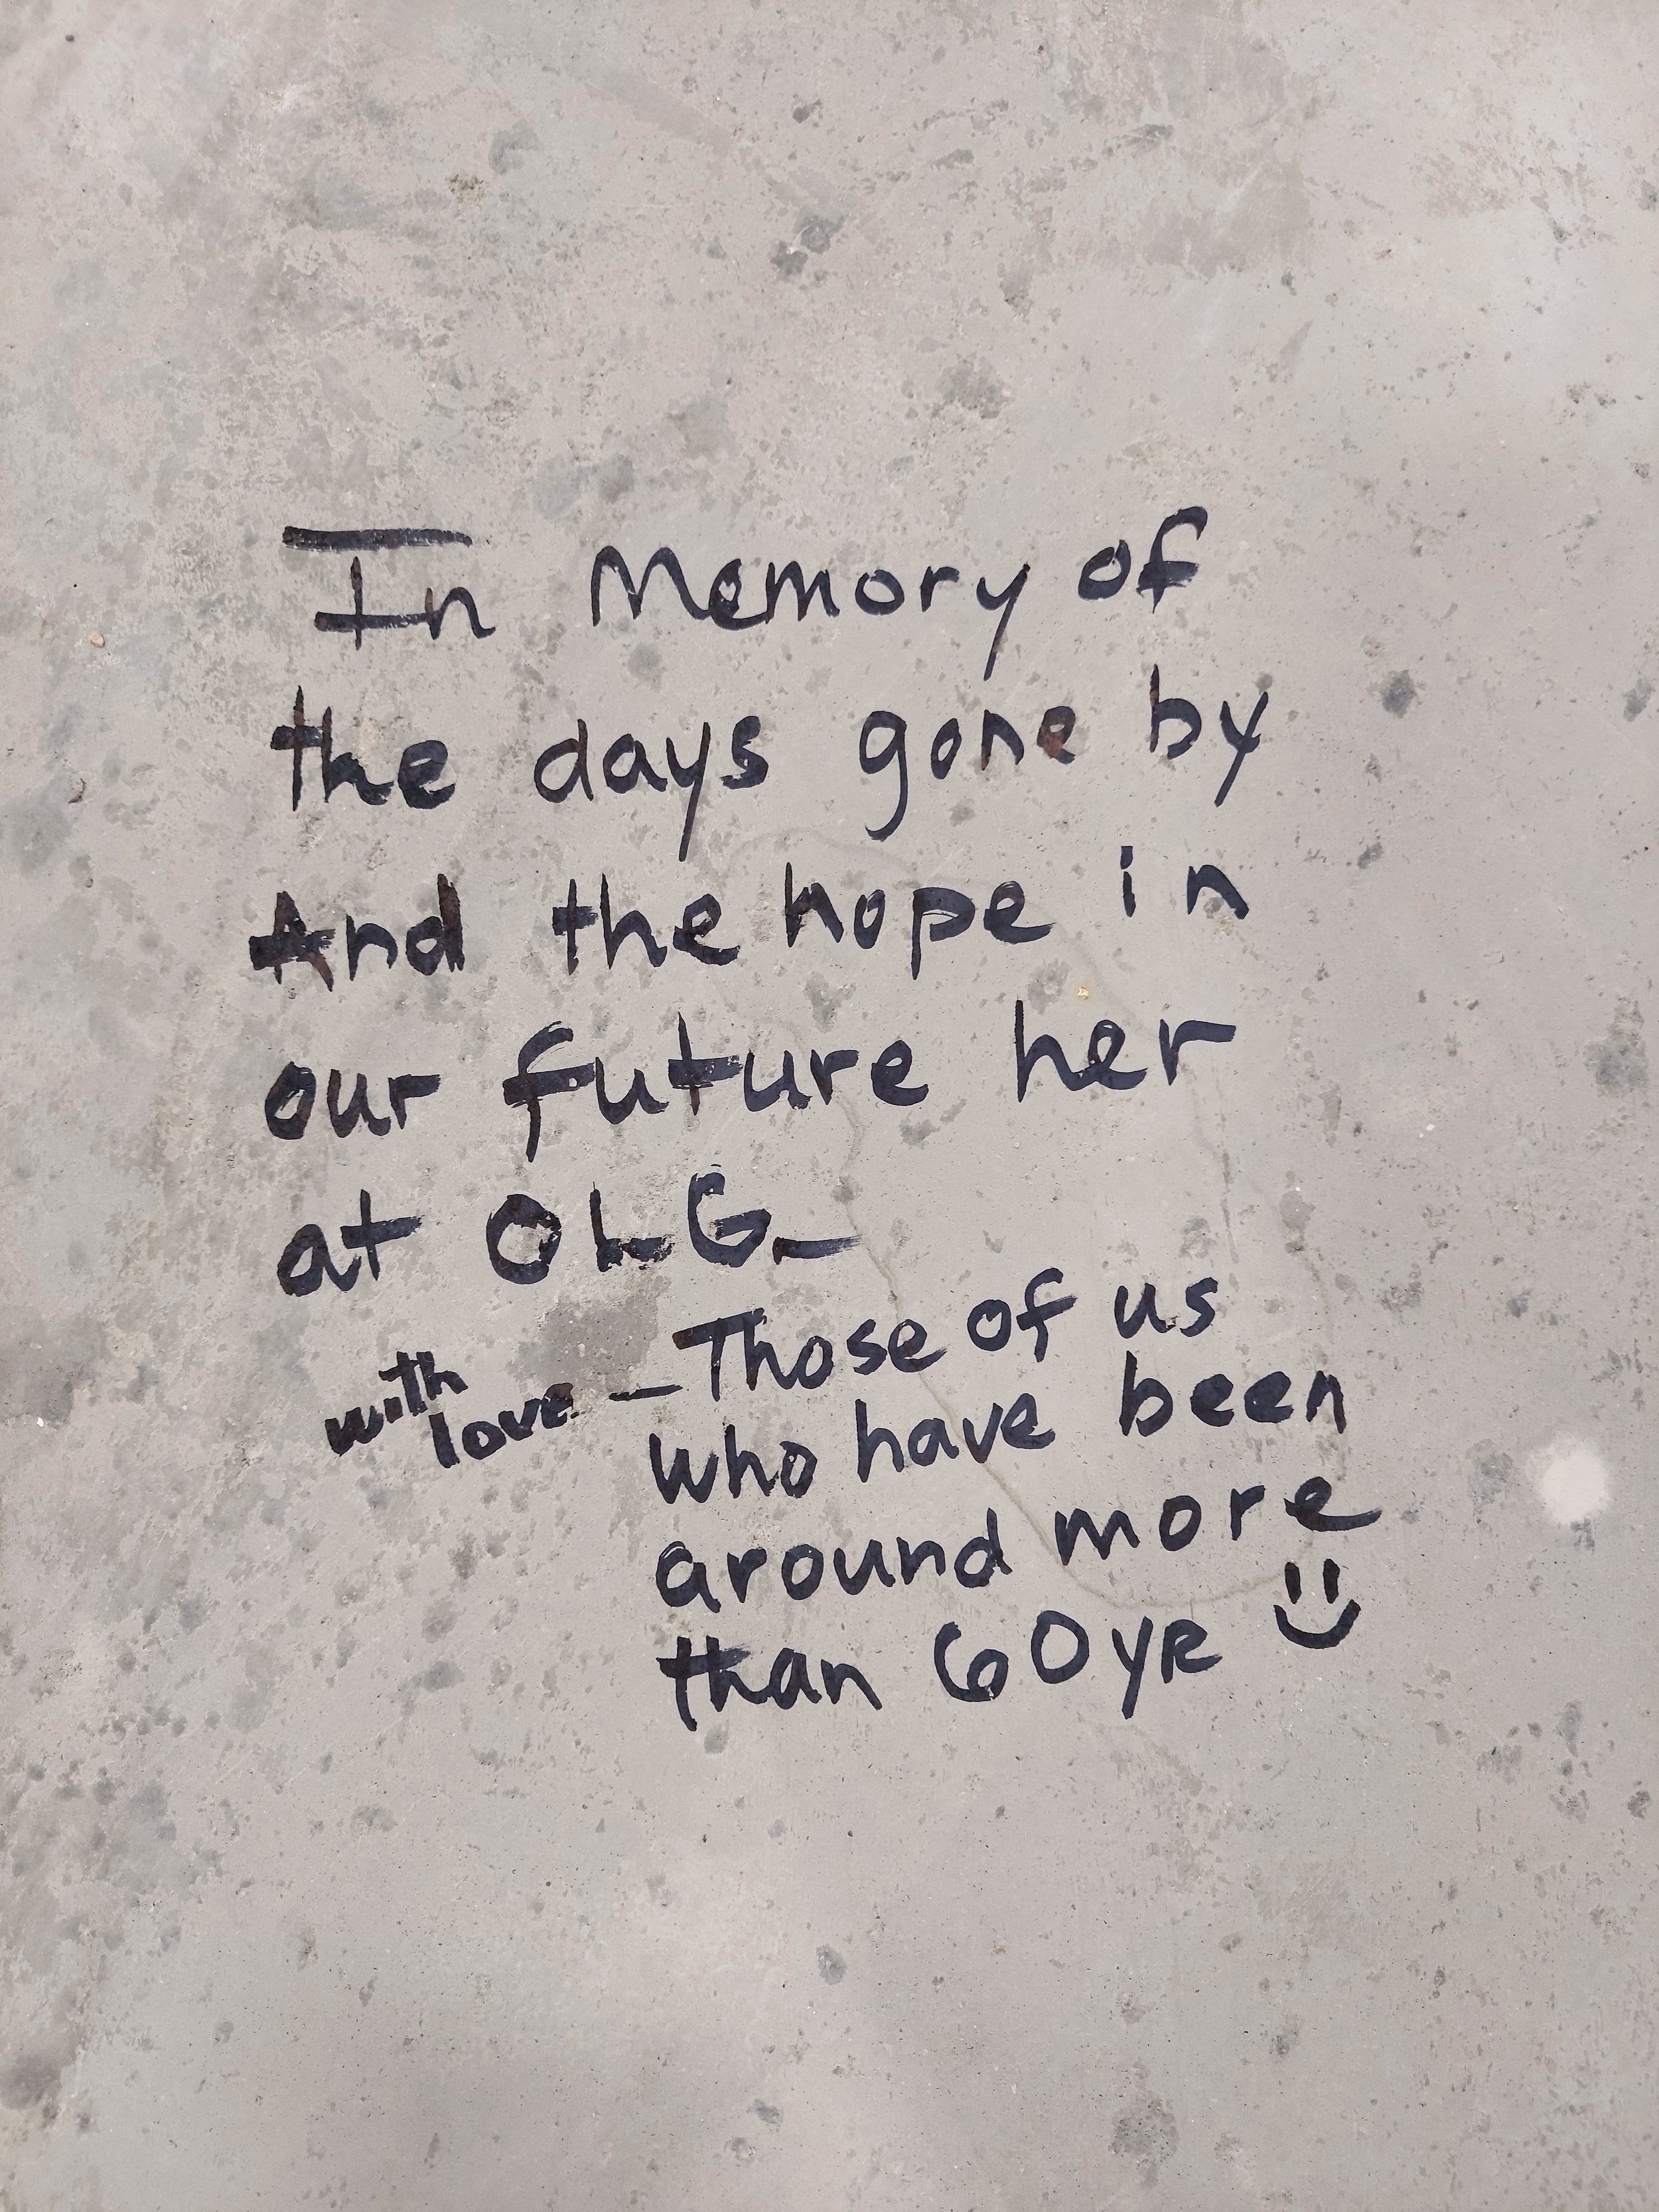 In Memory of
the days gone by
And the hope in
our future her
at OLG_
with
love
—Those of us
who have been
around more
than 60 yR